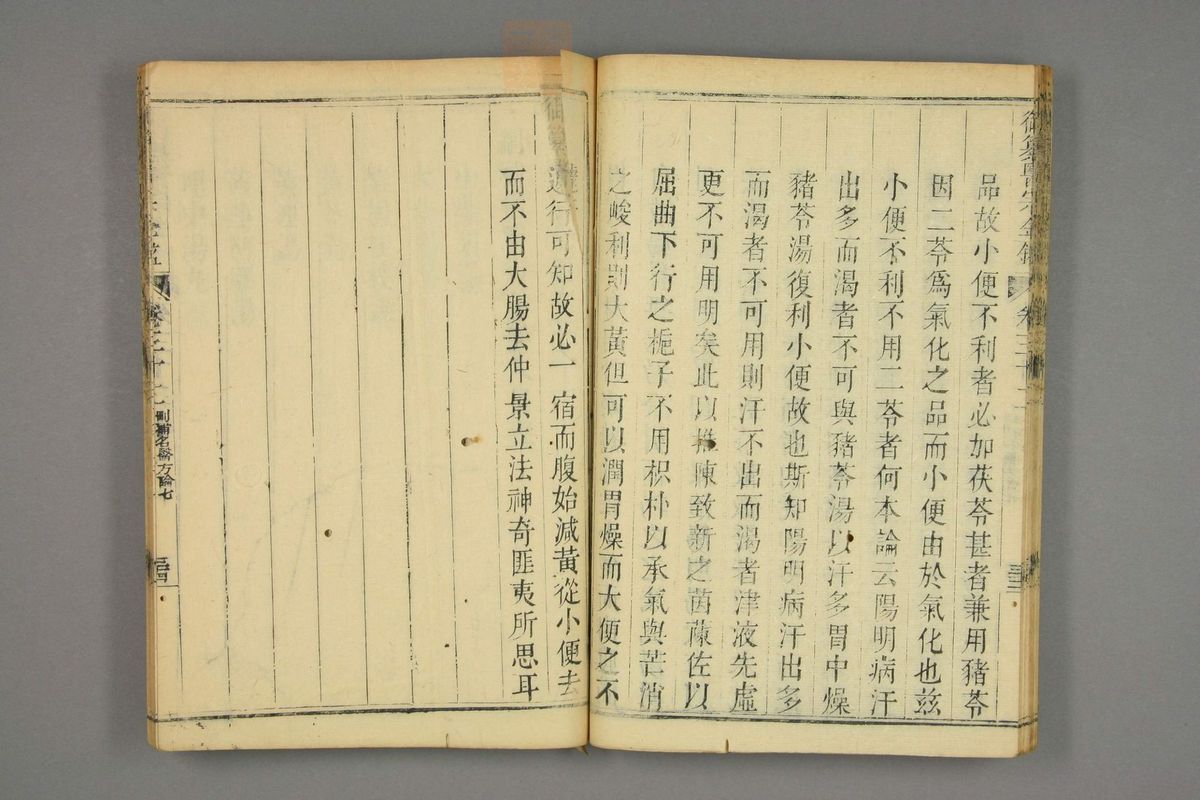 品故小便不利者必加茯苓甚者兼用豬苓
因二苓爲氣化之品而小便由於氣化也兹
小便不利不用二苓者何本論云陽明病汗
出多而渴者不可與豬苓湯以汗多胃中燥
豬苓湯復利小便故也斯知陽明病汗出多
而渴者不可用則汗不出而渴者津液先虛
更不可用明矣此以推陳致新之茵蔯佐以
屈曲下行之梔子不用枳朴以承氣與芒消
之峻利則大黃但可以潤胃燥而大便之不
遽行可知故必一宿而腹始減黃從小便去
而不由大腸去仲景立法神奇匪夷所思耳
刪補名醫方論七